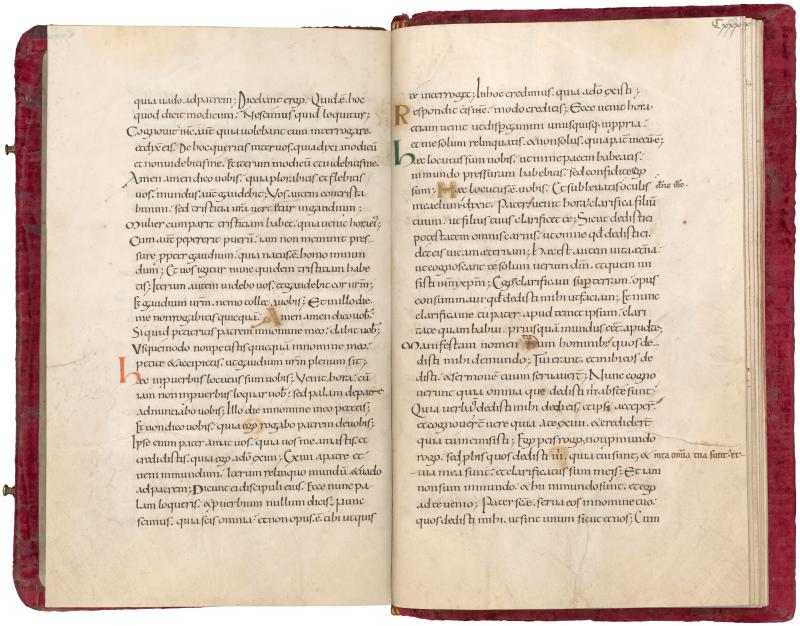 quia uado ad patrem; Dicebant ergo. Quid ē hoc
quod dicit modicum? Nescimus quid loquitur;
Cognouit ihc aūt quia uolebant eum interrogare.
et dix̄ eis. De hoc queritis inter uos. quia dixi. modicū
et non uidebitis me. et iterum modicū et uidebitis me.
Amen amen dico uobis. quia plorabitis et flebitis
uos. mundus aūt gaudebit; Vos autem contrista
bimini. sed tristitia ur̄a uertetur in gaudium;
Mulier cum parit tristitiam habet. quia uenit hora eius;
Cum aūt pepererit puerū. iam non meminit pres
surę ppter gaudium. quia natus ē homo in mun
dum; Et uos igitur nunc quidem tristitiam habe
tis; Iterum autem uidebo uos. et gaudebit cor ur̄m;
Et gaudium ur̄m. nemo tollet a uobis; Et in illo die
me non rogabitis quicquā. Amen amen dico uob;
Si quid petieritis patrem in nomine meo. dabit uob;
Vsque modo non petistis quicquā in nomine meo.
petite & accipietis. ut gaudium ur̄m plenum sit;
hec in puerbiis locutus sum uobis; Venit hora. cū
iam non in puerbiis loquar uob; sed palam de patre
adnuntiabo uobis; Illo die in nomine meo petetis;
Et non dico uobis. quia ego rogabo patrem de uobis;
Ipse enim pater amat uos. quia uos me amastis. et
credidistis. quia ego a dō exiui; Exiui a patre et
ueni in mundum. Iterum relinquo mundū. & uado
ad patrem; Dicunt ei discipuli eius. Ecce nunc pa
lam loqueris. & puerbium nullum dicis; Nunc
scimus. quia scis omnia. et non opus ē tibi ut quis
Cxxxx
te interroget; In hoc credimus. quia a dō existi;
Respondit eis ihc. modo creditis; Ecce uenit hora.
et iam uenit. ut dispgamini unusquisq; in ppria.
et me solum relinquatis. & non solus. quia pat̄ mecū ē;
hec locutus sum uobis. ut in me pacem habeatis.
In mundo pressuram habebitis. sed confidite
sum; Hec locutus ē uobis. Et subleuatis oculis
in caelum dixit. Pater uenit hora. clarifica filiū
tuum. ut filius tuus clarificet te; Sicut dedisti ei
potestatem omnis carnis. ut omne qd dedisti ei.
det eis uitam ęternam; Hęc est autem uita ęt̄na.
ut cognoscant te solum uerum dm̄. et quem mi
sisti ihm xpm; Ego te clarificaui sup terram. opus
consummaui qd dedisti mihi ut faciam; Et nunc
clarifica me tu pater apud temet ipsum. clari
tate quam habui. priusquā mundus eēt. apud te;
Manifestaui nomen tuum hominib; quos de
disti mihi de mundo; Tui erant. et mihi eos de
disti. & sermonē tuum seruauer̄; Nunc cogno
uerunt quia omnia que dedisti m̄ abs te sunt.
Quia uerba quę dedisti mihi dedi eis. et ipsi acceper̄.
et cognouer̄ uere quia a te exiui. & credidert̄
quia tu me misisti; Ego p eis rogo. non p mundo
rogo. sed p his quos dedisti m̄. quia tui sunt. & mea om̄a tua sunt. et
tua mea sunt. et clarificatus sum in eis; Et iam
non sum in mundo. & hi in mundo sunt. et ego
ad te uenio; Pater sc̄e. serua eos in nomine tuo.
quos dedisti mihi. ut sint unum sicut et nos; Cum